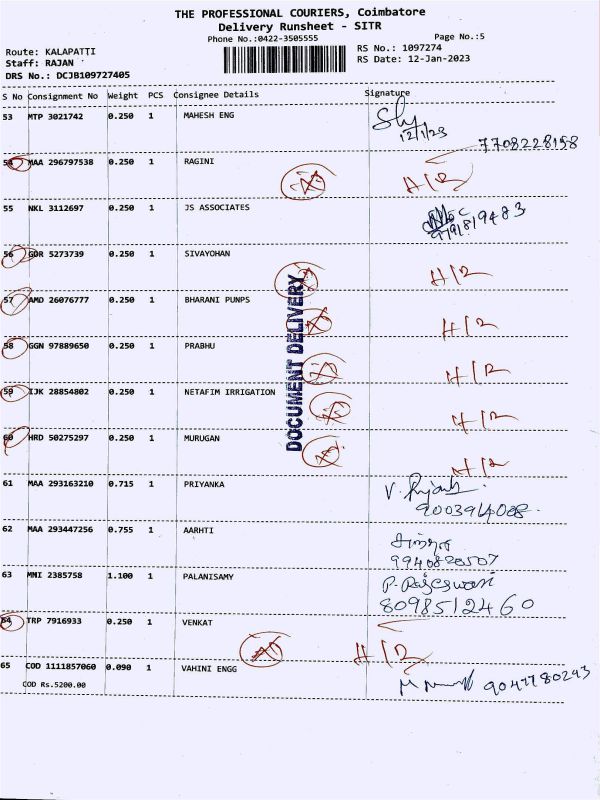 THE PROFESSIONAL COURIERS, Coimbatore
Delivery Runsheet - SITR
Phone No.:0422-3505555 Page No.:5
Route: KALAPATTI RS No.: 1097274
Staff: RAJAN RS Date: 12-Jan-2023
DRS No.: DCJB109727405
S No Consignment No Weight PCS Consignee Details Signature
53 MTP 3021742 0.250 1 MAHESH ENG
12/1/23
7708228158
54 MAA 296797538 0.250 1 RAGINI H/R
55 NKL 3112697 0.250 1 JS ASSOCIATES
9791819483
56 GDR 5273739 0.250 1 SIVAYOHAN H/R
57 AMD 26076777 0.250 1 BHARANI PUNPS H/R
58 GGN 97889650 0.250 1 PRABHU H/R
59 IJK 28854802 0.250 1 NETAFIM IRRIGATION H/R
60 HRD 50275297 0.250 1 MURUGAN H/R
DOCUMENT DELIVERY
61 MAA 293163210 0.715 1 PRIYANKA
9003914088
62 MAA 293447256 0.755 1 AARHTI
9940820507
63 MNI 2385758 1.100 1 PALANISAMY P. Rajeswari
8098512460
64 TRP 7916933 0.250 1 VENKAT H/R
65 COD 1111857060 0.090 1 VAHINI ENGG 9047780293
COD Rs.5200.00